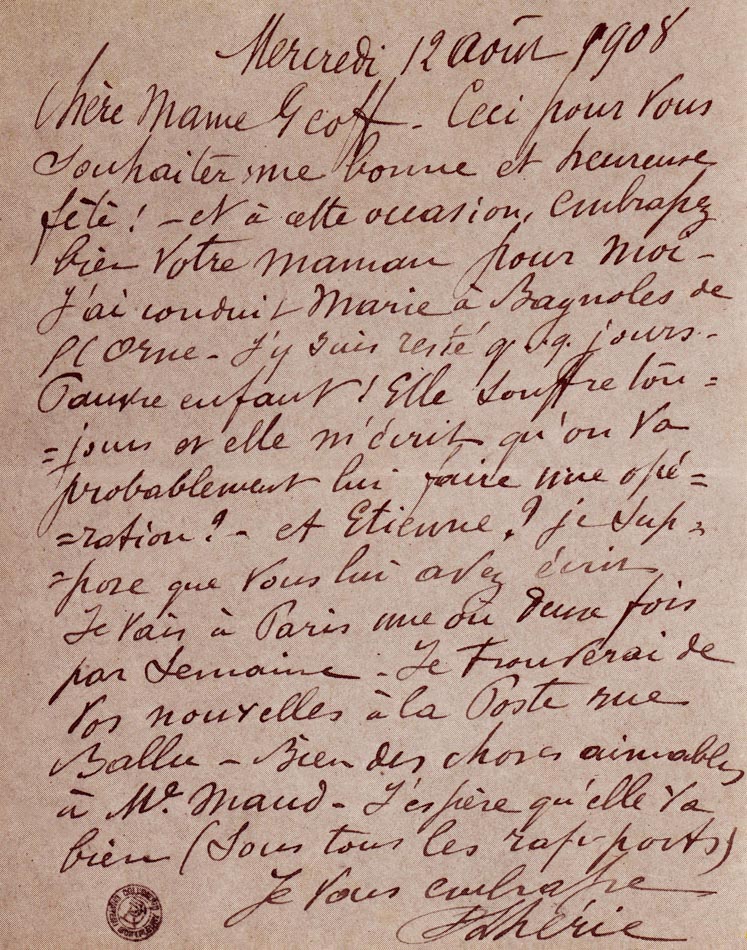 Mercredi 12 août 1908
Chère Mame Geoff - Ceci pour vous
souhaiter une bonne et heureuse
fête ! - et à cette occasion, embrassez
bien votre maman pour moi -
J'ai conduit Marie à Bagnoles de
l'Orne - J'y suis resté qq. jours -
Pauvre enfant ! Elle souffre tou=
=jours et elle m'écrit qu'on va
probablement lui faire une opé=
=ration ? - et Etienne ? je sup=
=pose que vous lui avez écrit
Je vais à Paris une ou deux fois
par semaine - Je trouverai de
vos nouvelles à la Poste rue
Ballu - Bien des choses aimables
à Me. Maud - J'espère qu'elle va
bien (sous tous les rapports)
Je vous embrasse
Lhérie